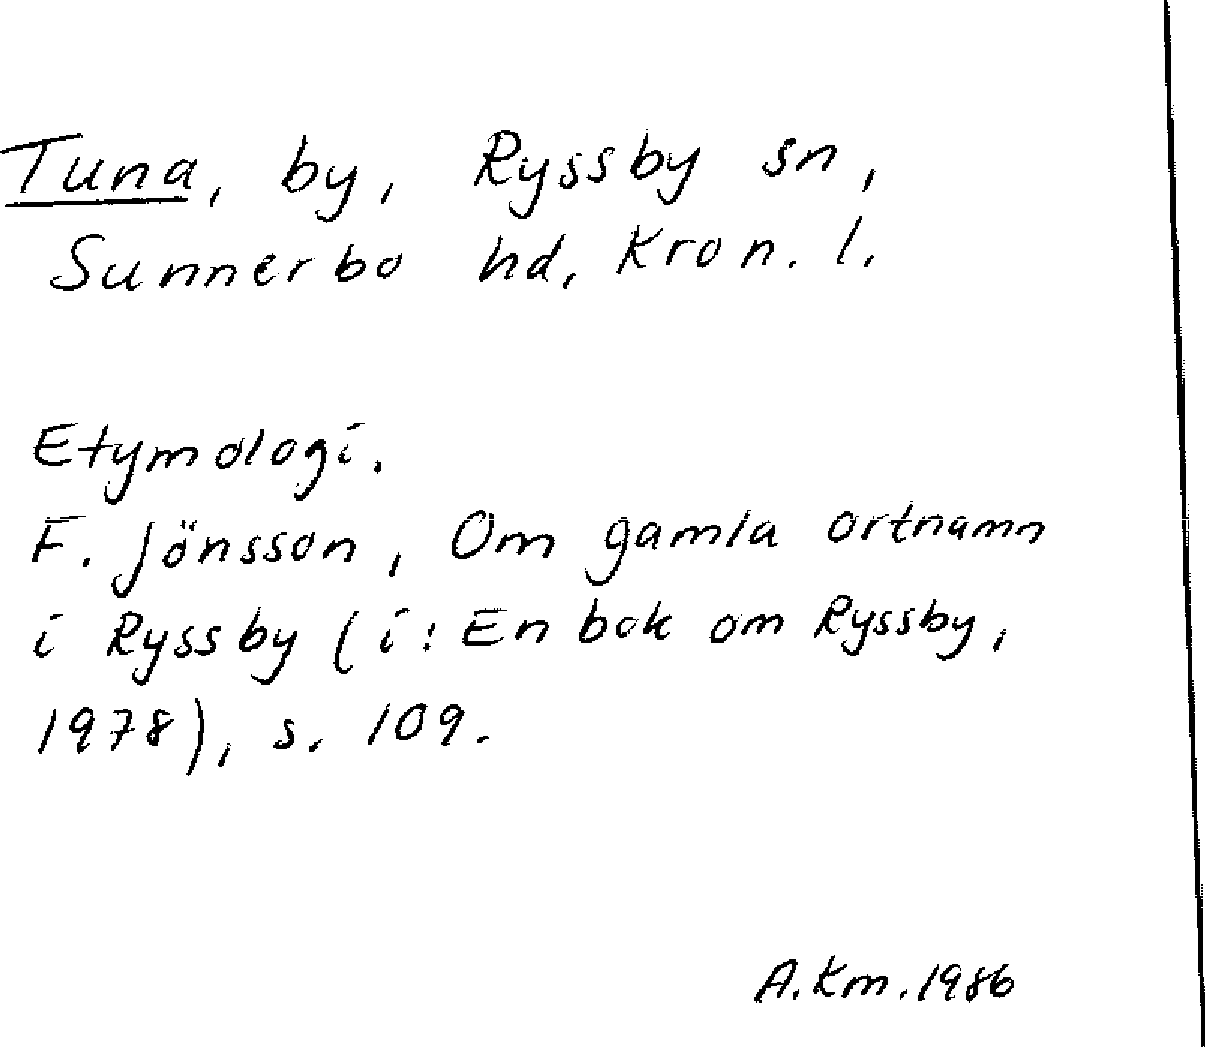 Tuna, by, Ryssby sn,
Sunnerbo hd, Kron. l.
Etymologi.
F. Jönsson, Om gamla ortnamn
i Ryssby (i: En bok om Ryssby,
1978), s. 109.
A. Km. 1986